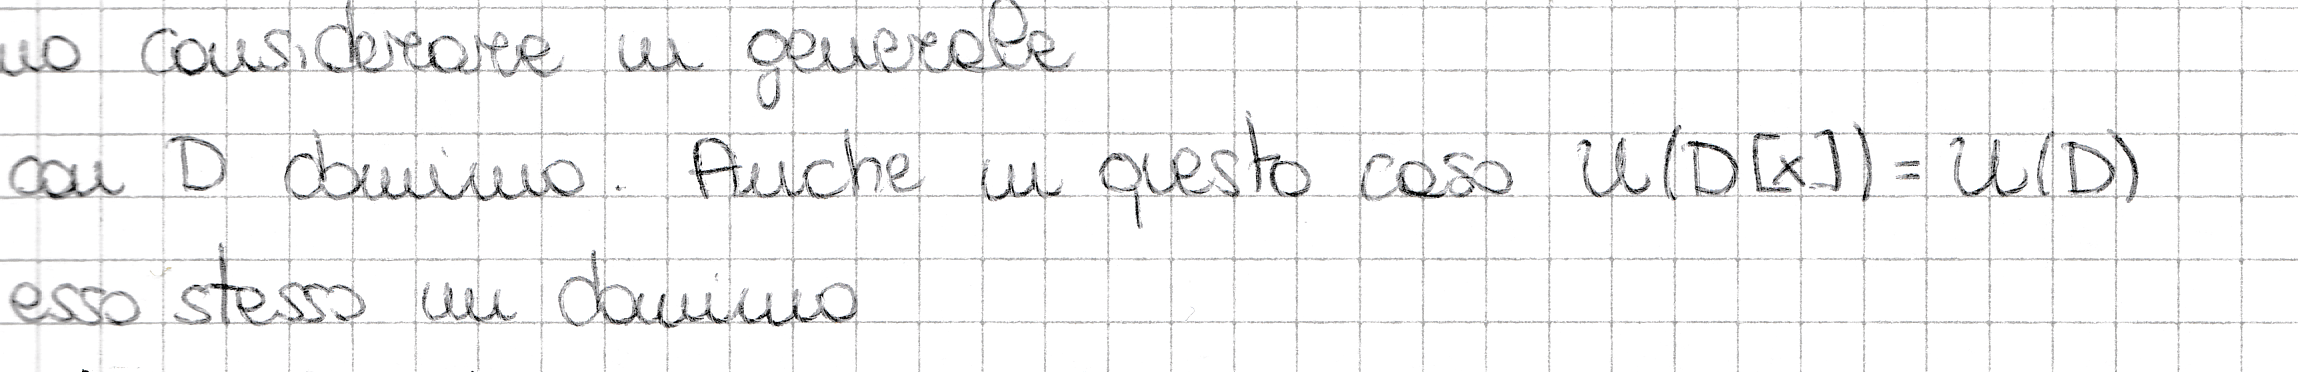 no considerare in generale
con D dominio. Anche in questo caso U(D[x]) = U(D)
esso stesso un dominio